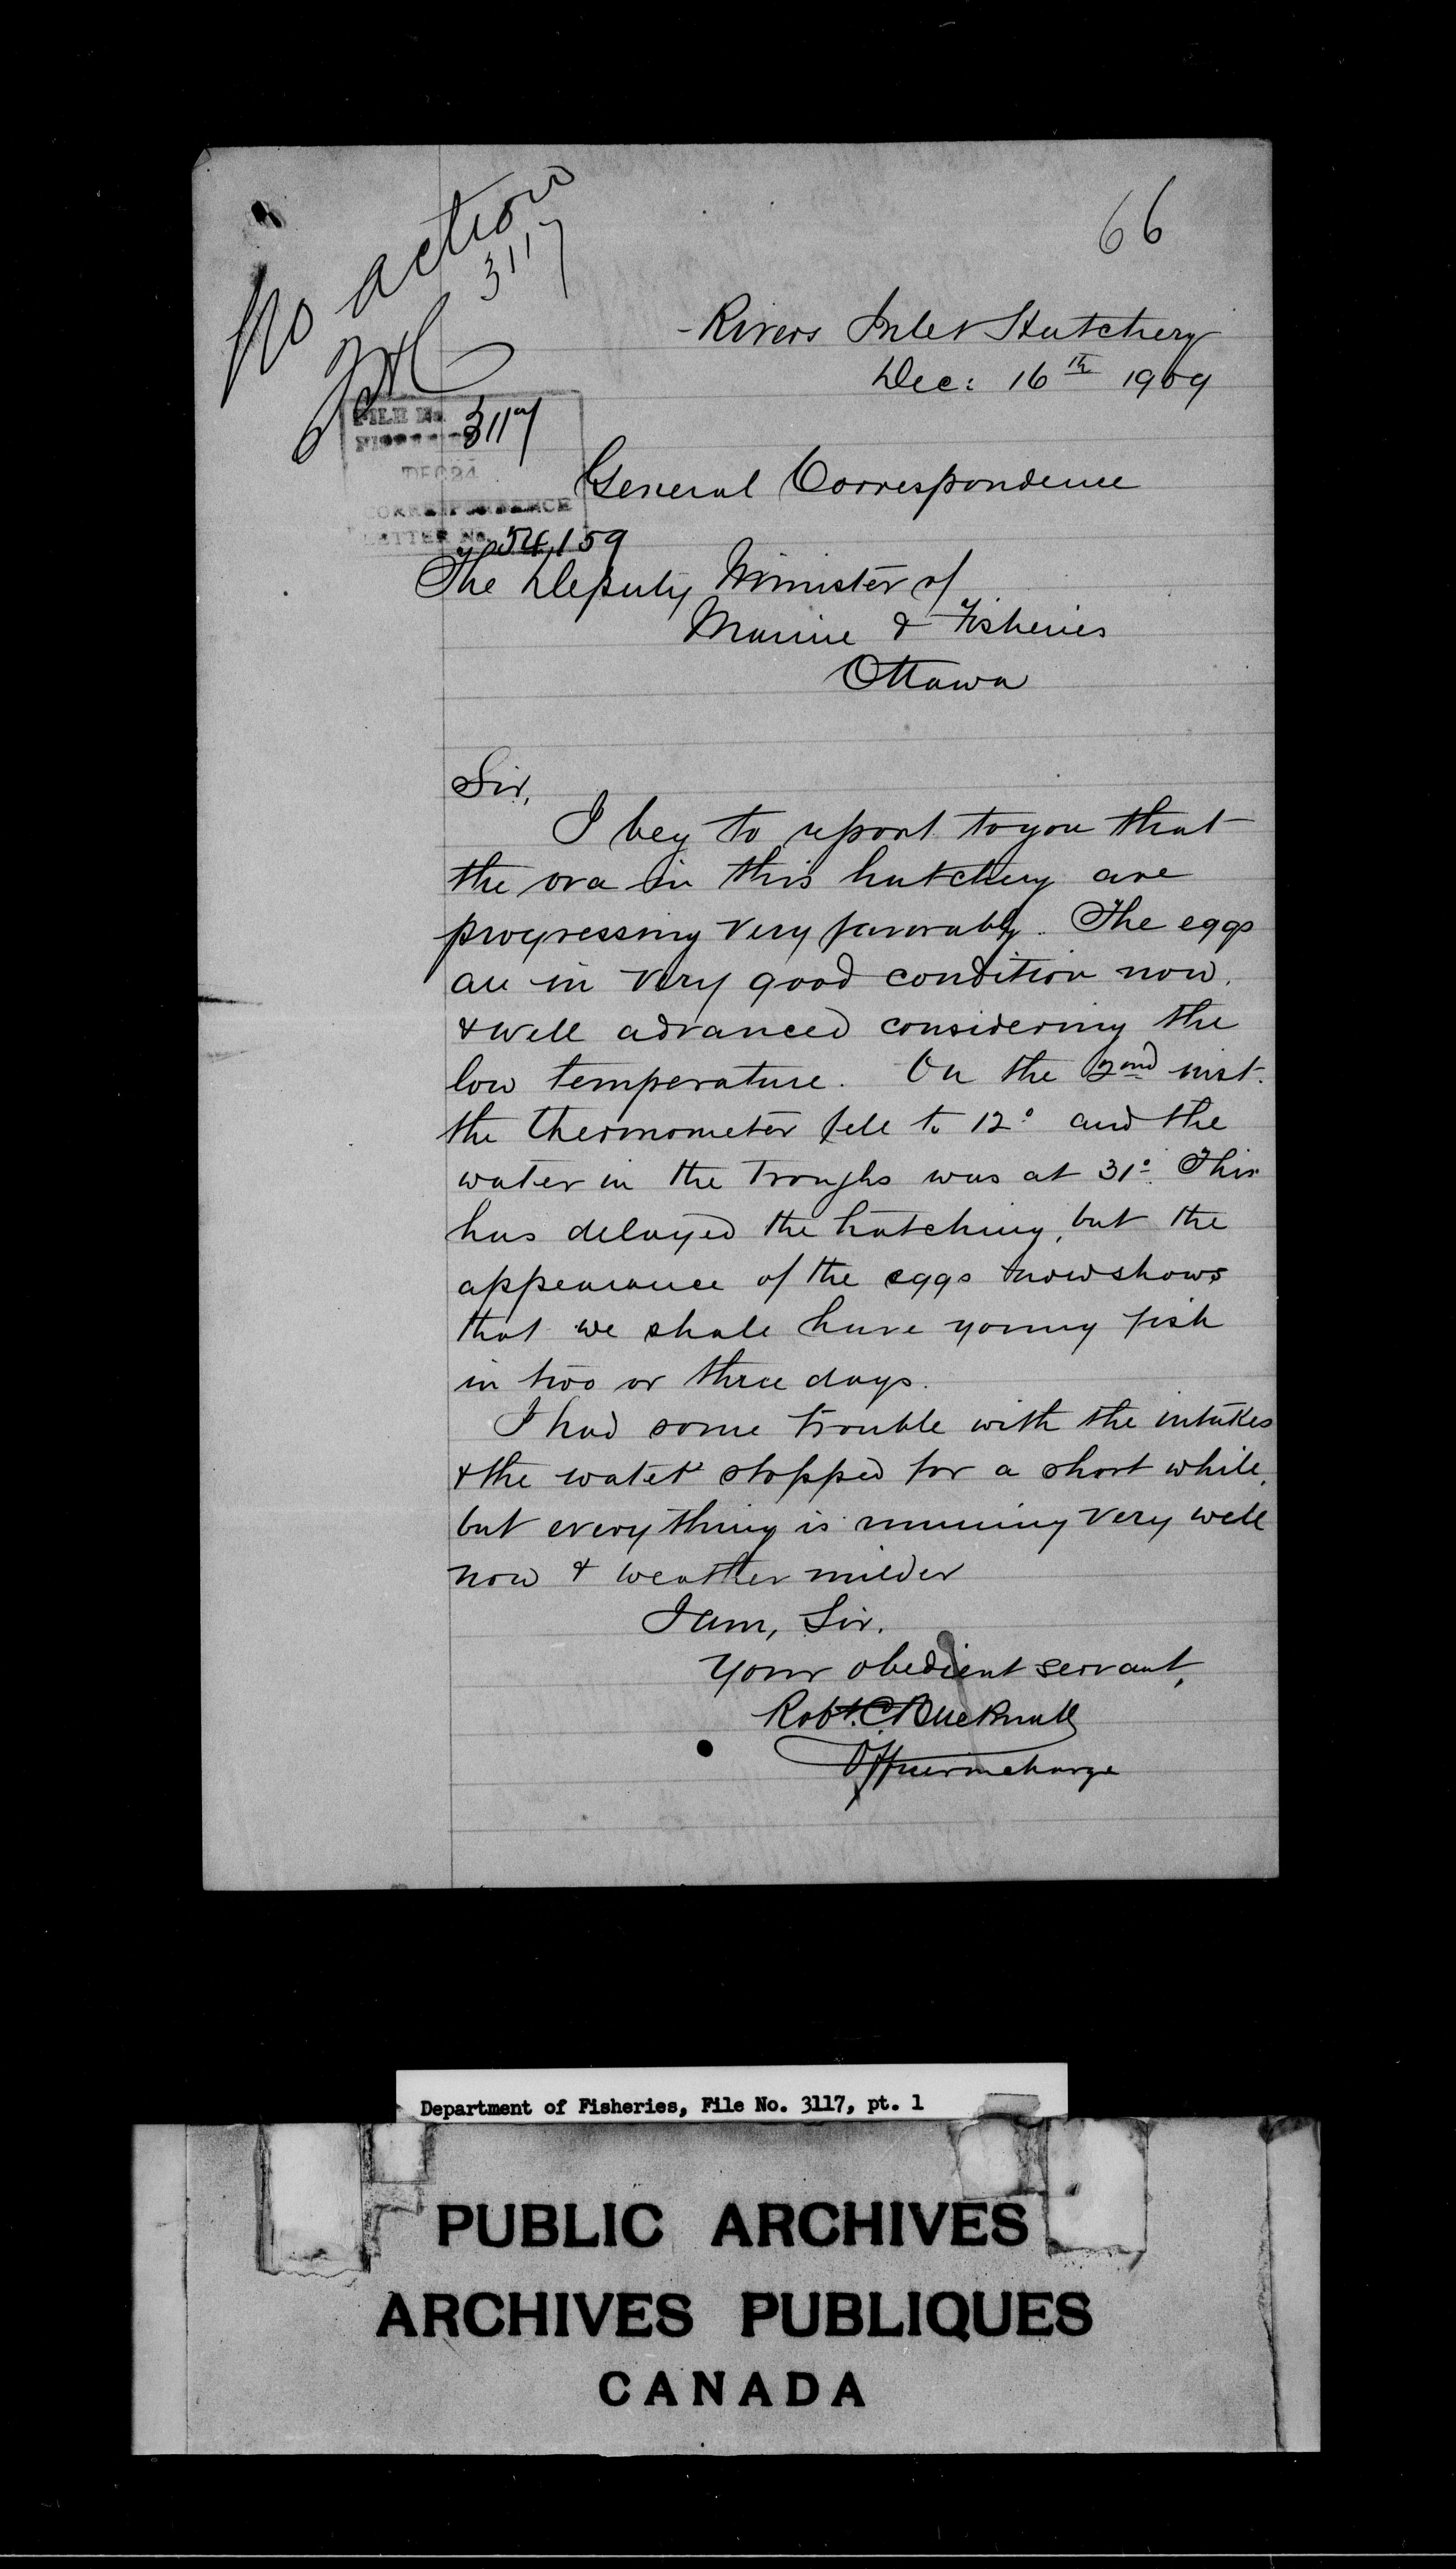 66
No action
3117
Rivers Inlet Hatchery
Dec: 16th 1909
FILE No. 3117
DEC 24
General Correspondence
CORRESPONDENCE
LETTER No. 54,159
The Deputy Minister of
Marine & Fisheries
Ottawa
Sir,
I beg to report to you that
the ova in this hatchery are
progressing very favorably. The eggs
are in very good condition now,
& well advanced considering the
low temperature. On the 2nd inst.
the thermometer fell to 12° and the
water in the troughs was at 31°. This
has delayed the hatching, but the
appearance of the eggs now shows
that we shall have young fish
in two or three days.
I had some trouble with the intakes
& the water stopped for a short while,
but everything is running very well
now & weather milder
I am, Sir.
Your obedient servant,
Robt. C. Bucknall
Officer in charge
Department of Fisheries, File No. 3117, pt. 1
PUBLIC ARCHIVES
ARCHIVES PUBLIQUES
CANADA